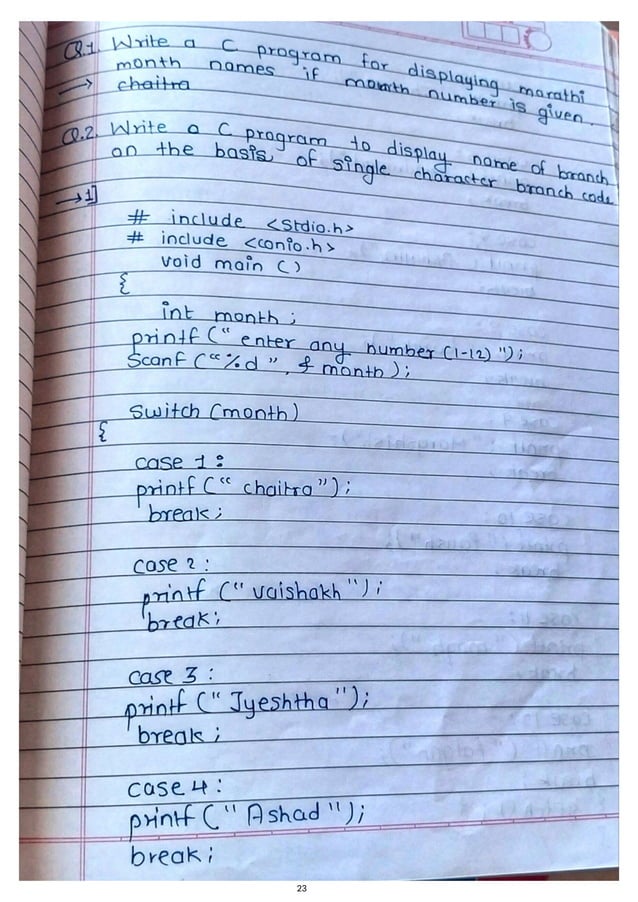 Q.1. Write a C program for displaying marathi
month names if month number is given.
→ chaitra
Q.2. Write a C program to display name of branch
on the basis of single character branch code
→1]
# include <stdio.h>
# include <conio.h>
void main ()
{
int month ;
printf (" enter any number (1-12) ");
Scanf ("%d ", & month );
Switch (month)
{
case 1 :
printf (" chaitra");
break ;
case 2 :
printf (" vaishakh ");
break ;
case 3 :
printf (" Jyeshtha ");
break ;
case 4 :
printf (" Ashad ");
break ;
23